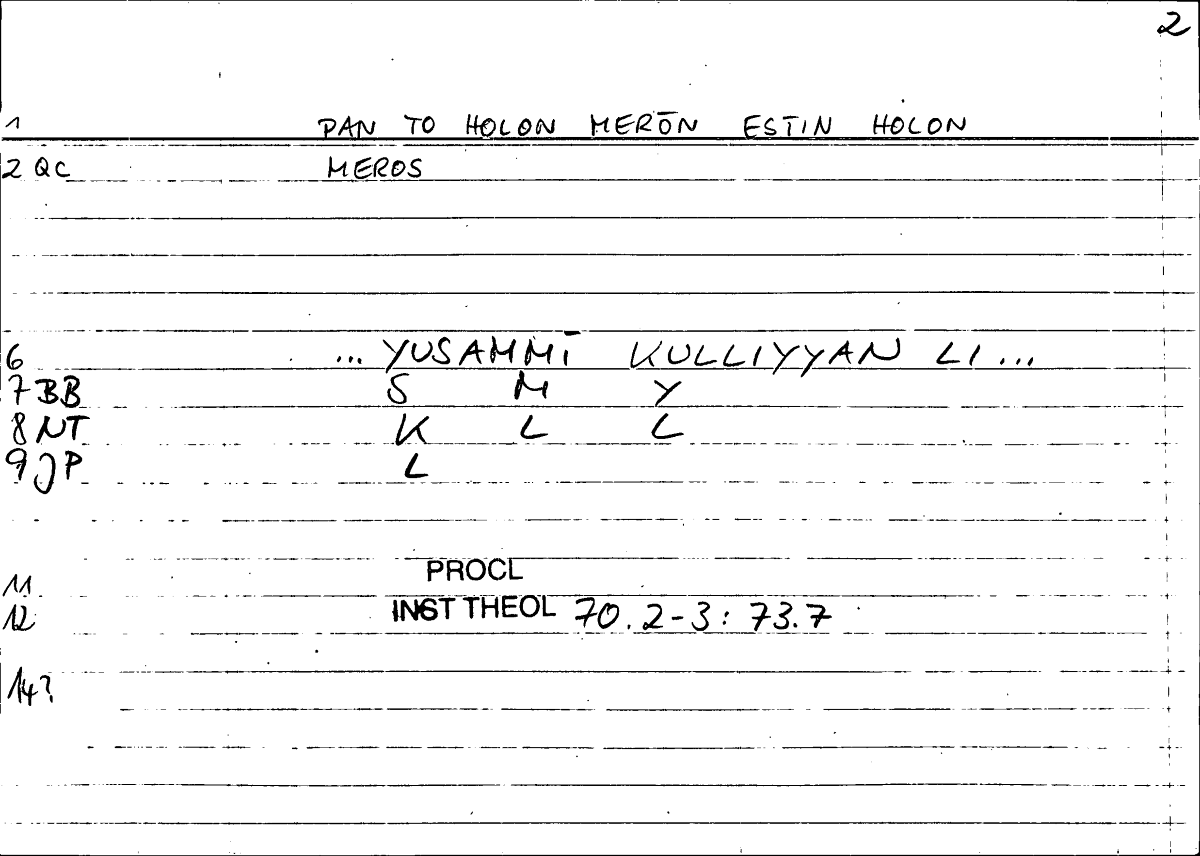 2
1 PAN TO HOLON MERŌN ESTIN HOLON
2 QC MEROS
6 ... YUSAMMĪ KULLIYYAN LI ...
7 BB S M Y
8 NT K L L
9 JP L
11 PROCL
12 INST THEOL 70.2-3 : 73.7
14?